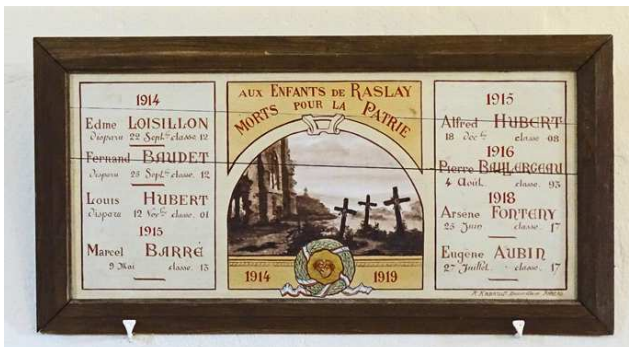 1914
Edme LOISILLON
Disparu 22 Sept.bre classe 12
Fernand BAUDET
Disparu 25 Sept.bre classe. 12
Louis HUBERT
disparu 12 Nov.bre classe. 01
1915
Marcel BARRÉ
9 Mai classe. 13
AUX ENFANTS DE RASLAY
MORTS POUR LA PATRIE
1914 1919
1915
Alfred HUBERT
18 Déc.bre classe 08
1916
Pierre BAILLERGEAU
4 Août. classe. 93
1918
Arsène FONTENY
25 Juin classe. 17
Eugène AUBIN
27 Juillet. classe. 17